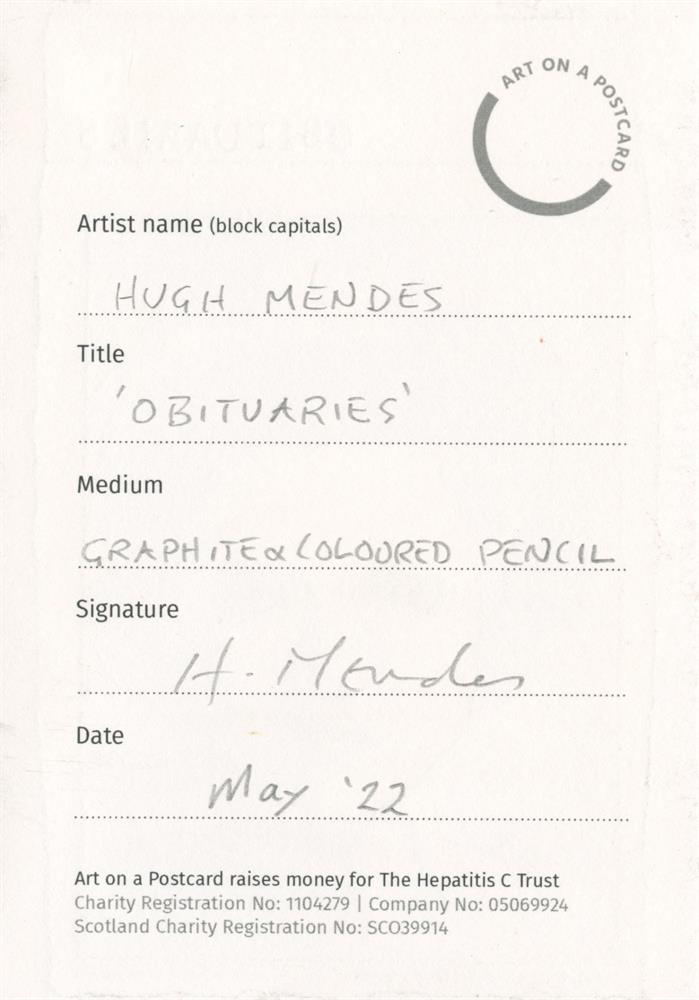 ART ON A POSTCARD
Artist name (block capitals)
HUGH MENDES
Title
'OBITUARIES'
Medium
GRAPHITE & COLOURED PENCIL
Signature
H. Mendes
Date
May '22
Art on a Postcard raises money for The Hepatitis C Trust
Charity Registration No: 1104279 | Company No: 05069924
Scotland Charity Registration No: SCO39914